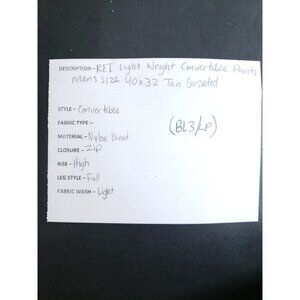 DESCRIPTION - REI Light Weight Convertible Pants
mens size 40x32 Tan Gusseted
STYLE - Convertible
FABRIC TYPE -
MATERIAL - Nylon Blend
(BL3/LP)
CLOSURE - Zip
RISE - High
LEG STYLE - Full
FABRIC WASH - Light